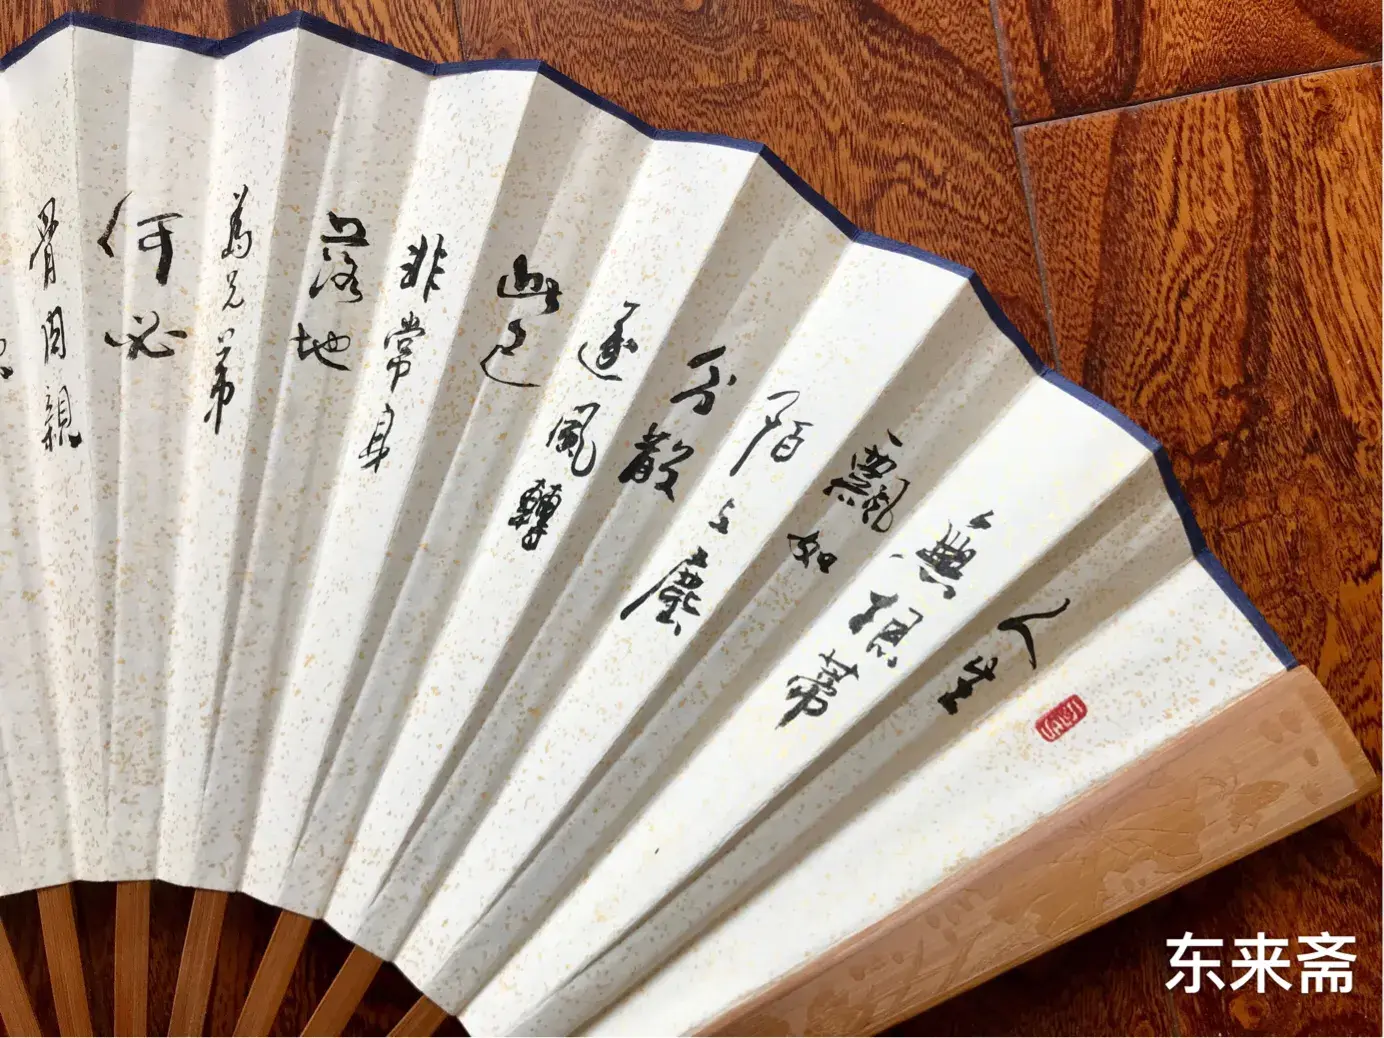 人生
無根蒂
飄如
陌上塵
分散
逐風轉
此已
非常身
落地
為兄弟
何必
骨肉親
东来斋